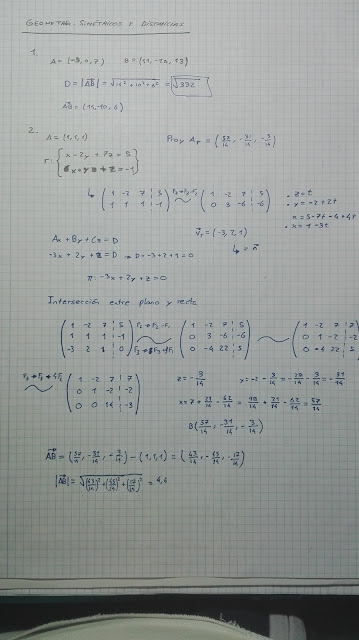 GEOMETRÍA. SIMÉTRICOS Y DISTANCIAS
1.
A = (-8, 0, 7) B = (11, -10, 13)
D = |AB| = √(11² + 10² + 6²) = √332
AB = (11, -10, 6)
2.
A = (1, 1, 1) Proy A_r = (57/14, -31/14, -3/14)
r: { x - 2y + 7z = 5
x + y + z = -1
( 1 -2 7 | 5 ) F2→F2-F1 ( 1 -2 7 | 5 )
( 1 1 1 | -1 ) ( 0 3 -6 | -6 )
· z = t
· y = -2 + 2t
x = 5 - 7t - 4 + 4t
· x = 1 - 3t
V_r = (-3, 2, 1)
↳ = n
Ax + By + Cz = D
-3x + 2y + z = D ⇒ D = -3 + 2 + 1 = 0
π: -3x + 2y + z = 0
Intersección entre plano y recta
( 1 -2 7 | 5 ) F2→F2-F1 ( 1 -2 7 | 5 ) ( 1 -2 7 | 7 )
( 1 1 1 | -1 ) ( 0 3 -6 | -6 ) ( 0 1 -2 | -2 )
( -3 2 1 | 0 ) F3→F3+3F1 ( 0 -4 22 | 5 ) ( 0 -4 22 | 5 )
F3→F3+4F2 ( 1 -2 7 | 7 )
( 0 1 -2 | -2 )
( 0 0 14 | -3 )
z = -3/14 y = -2 - 3/14 = -28/14 - 3/14 = -31/14
x = 7 + 21/14 - 62/14 = 98/14 + 21/14 - 62/14 = 57/14
B (57/14, -31/14, -3/14)
AB = (57/14, -31/14, -3/14) - (1, 1, 1) = (43/14, -45/14, -17/14)
|AB| = √((43/14)² + (45/14)² + (17/14)²) = 4,6